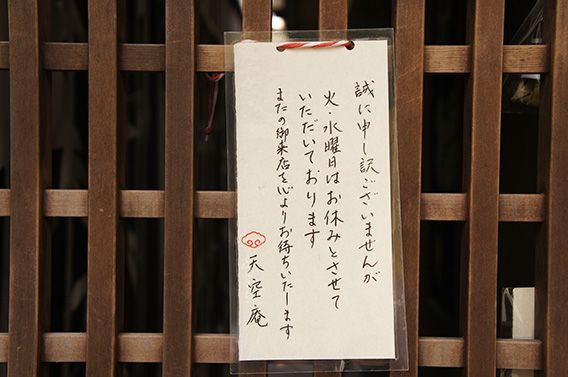 誠に申し訳ございませんが
火・水曜日はお休みとさせて
いただいております
またの御来店を心よりお待ちいたします
天空庵